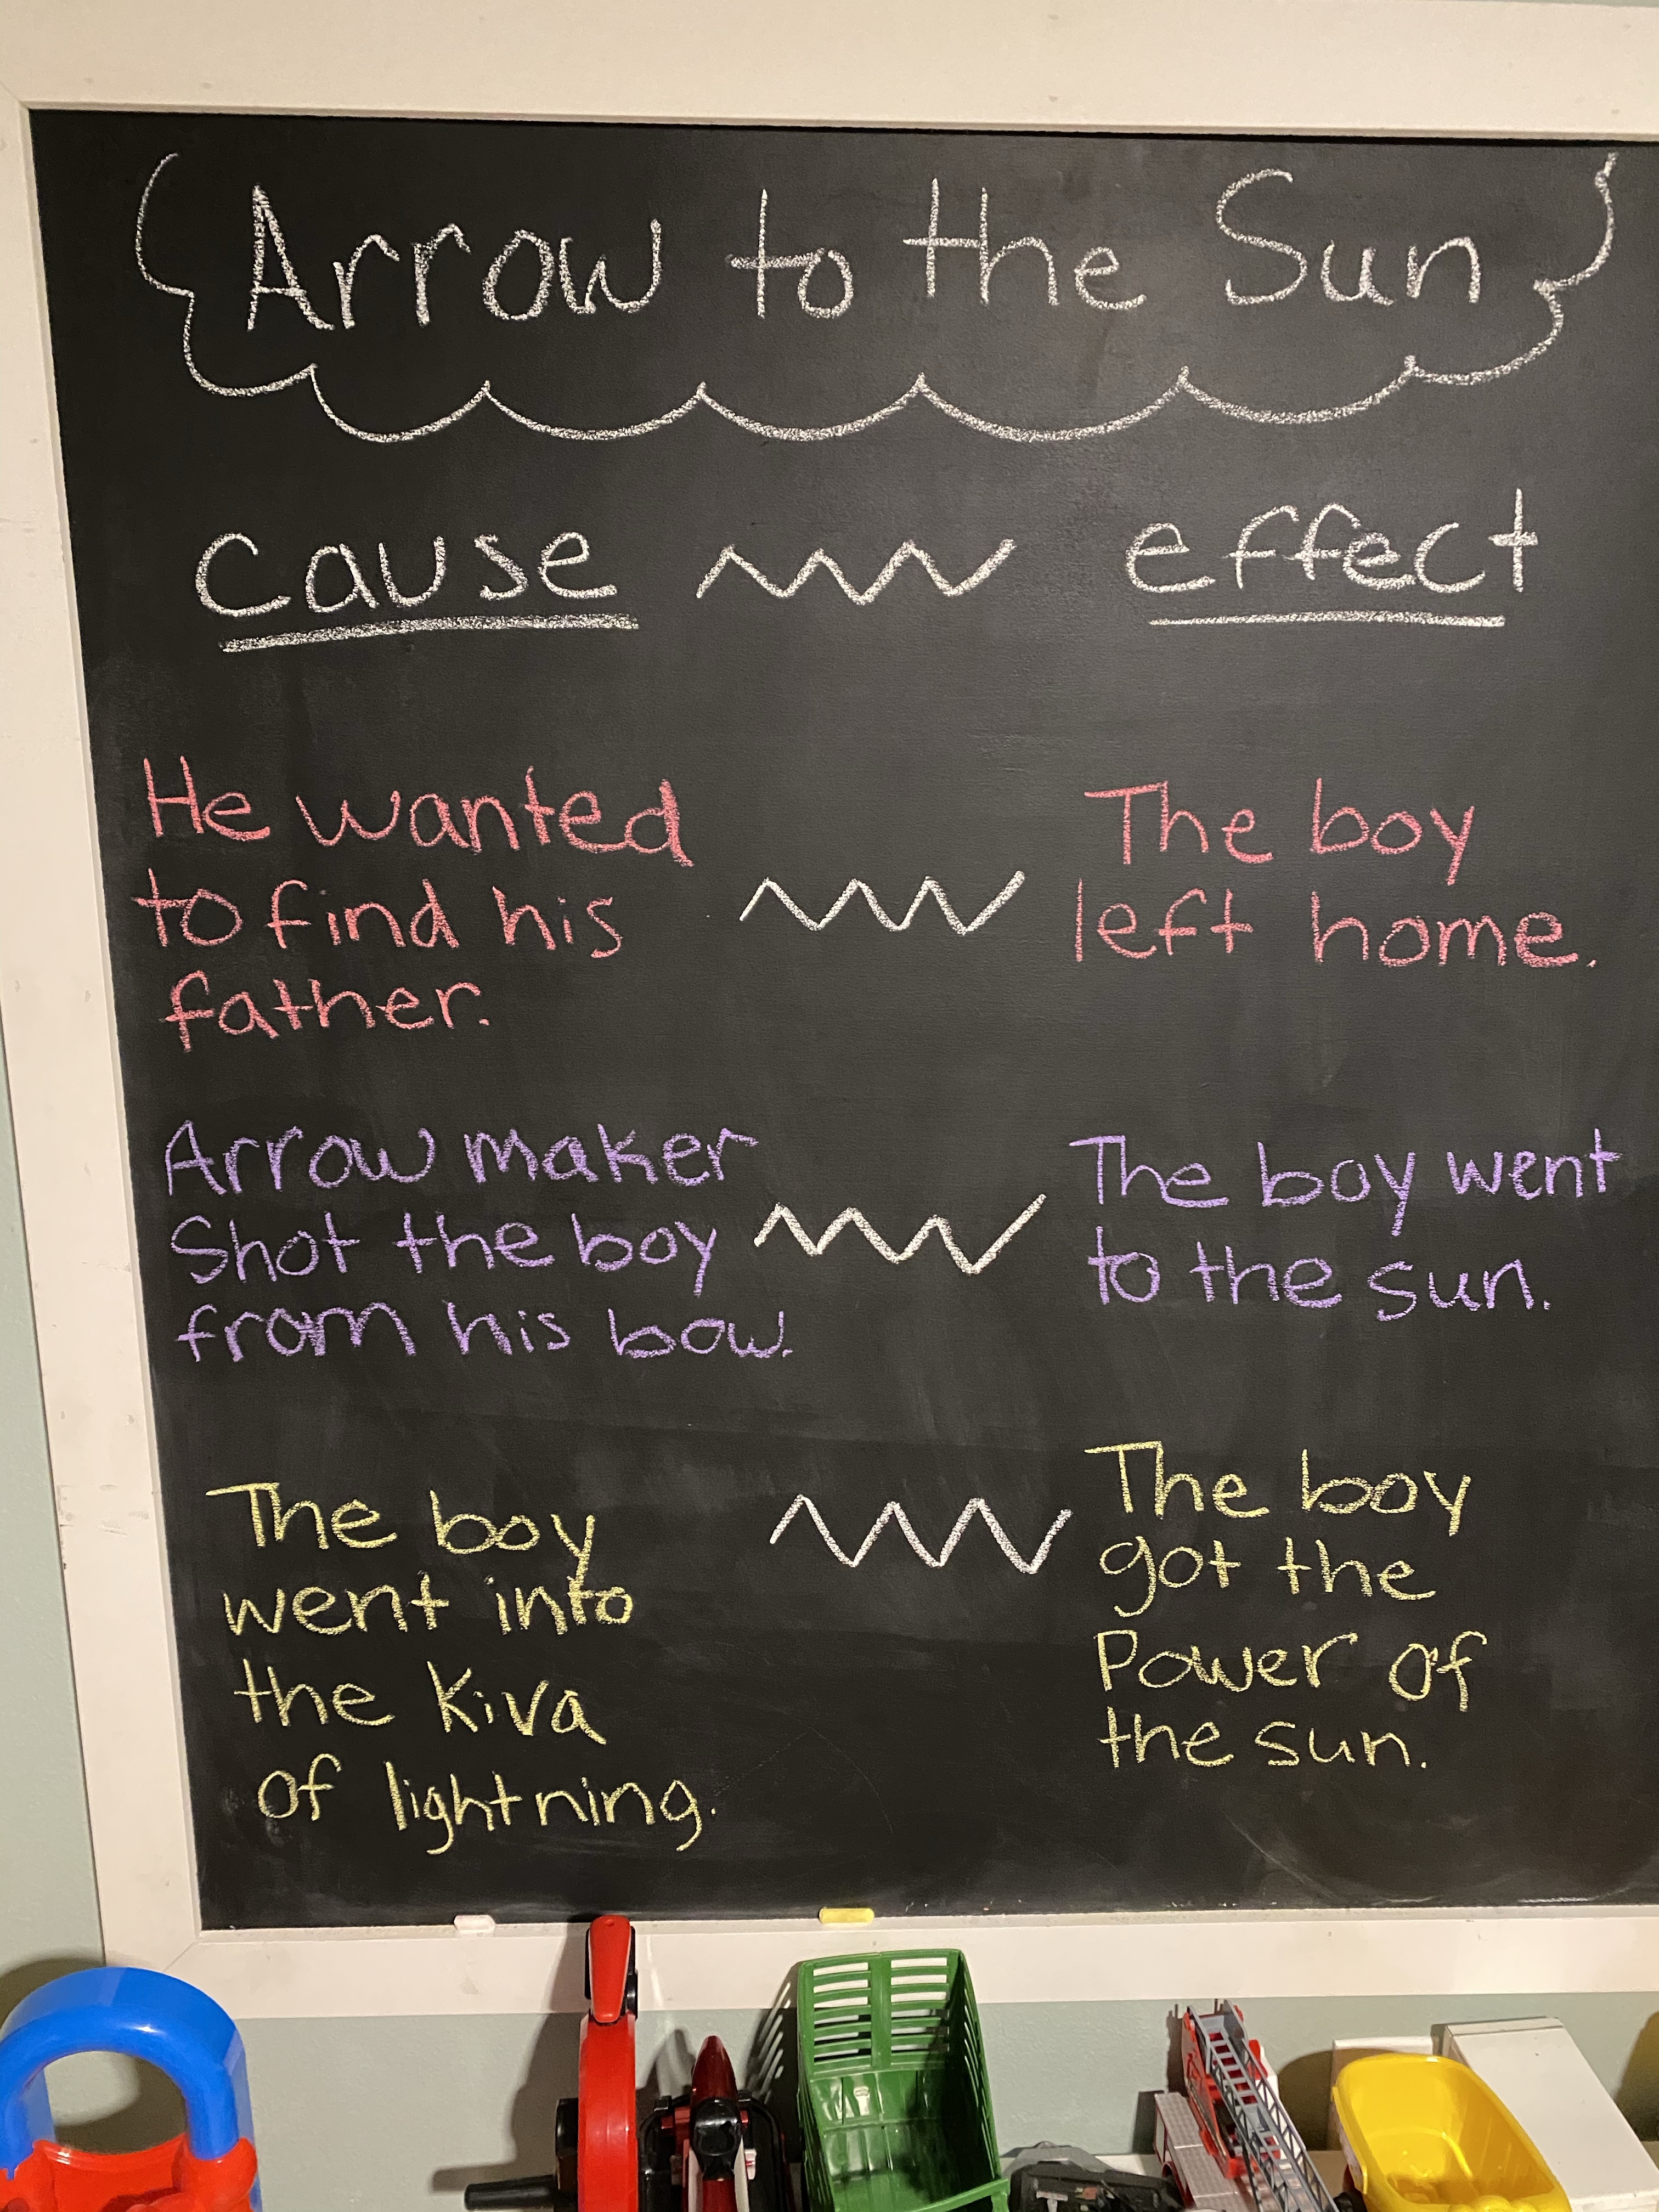 Arrow to the Sun
cause effect
He wanted
to find his
father.
The boy
left home.
Arrow maker
Shot the boy
from his bow.
The boy went
to the sun.
The boy
went into
the Kiva
of lightning.
The boy
got the
Power of
the sun.